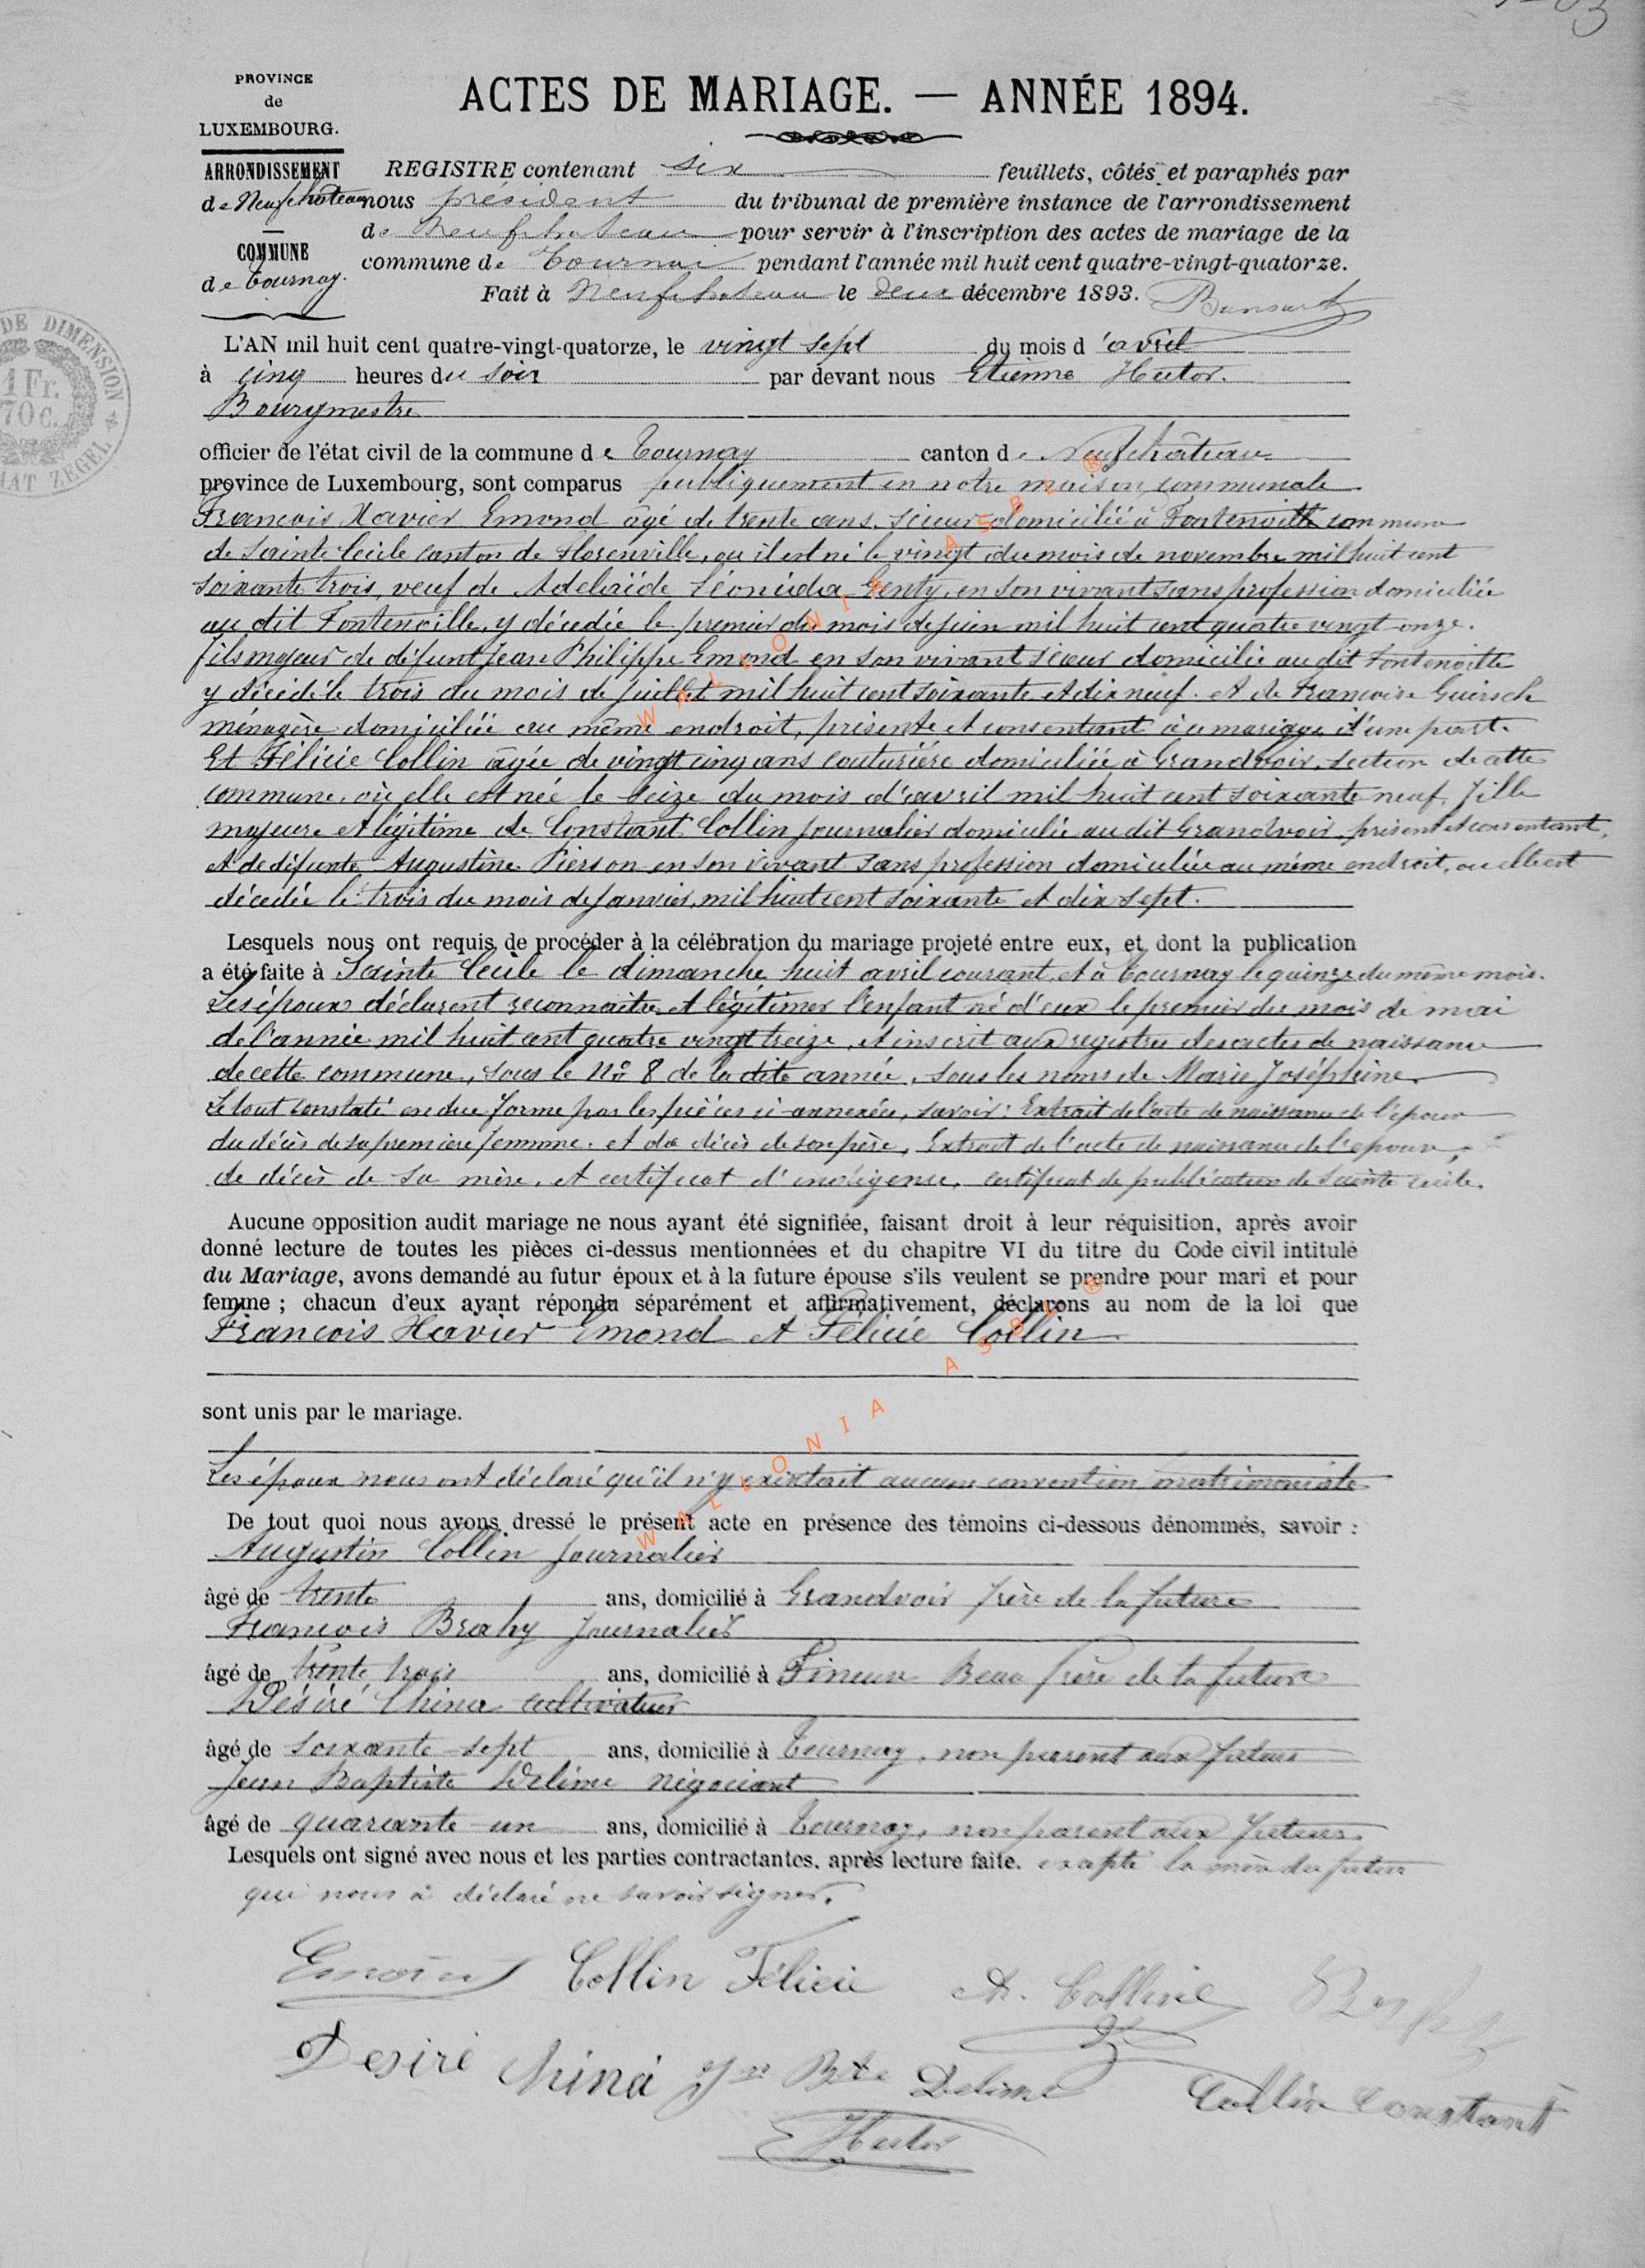 PROVINCE
de
LUXEMBOURG.
ACTES DE MARIAGE. — ANNÉE 1894.
ARRONDISSEMENT
de Neufchâteau
COMMUNE
de Tournay.
REGISTRE contenant six feuillets, côtés et paraphés par
nous président du tribunal de première instance de l'arrondissement
de Neufchateau pour servir à l'inscription des actes de mariage de la
commune de Tournai pendant l'année mil huit cent quatre-vingt-quatorze.
Fait à Neufchateau le deux décembre 1893.
DE DIMENSION
1 Fr.
70 c.
ZEGEL
L'AN mil huit cent quatre-vingt-quatorze, le vingt sept du mois d'avril
à cinq heures du soir par devant nous Etienne Hector.
Bourgmestre
officier de l'état civil de la commune de Tournay canton de Neufchâteau
province de Luxembourg, sont comparus publiquement en notre maison communale
Francois Xavier Emond âgé de trente ans, scieur domicilié à Fontenoille commune
de Sainte Cécile canton de Florenville, ou il est né le vingt du mois de novembre mil huit cent
soixante trois, veuf de Adelaïde Léonida Genty, en son vivant sans profession domiciliée
au dit Fontenoille, y décédée le premier du mois de juin mil huit cent quatre vingt onze.
fils majeur de défunt Jean Philippe Emond en son vivant scieur domicilié au dit Fontenoille
y décédé le trois du mois de juillet mil huit cent soixante et dix neuf. et de Francoise Guirsch
ménagère domiciliée au même endroit, présente et consentant à ce mariage d'une part.
Et Félicie Collin âgée de vingt cinq ans couturière domiciliée à Grandvoir, section de cette
commune, où elle est née le seize du mois d'avril mil huit cent soixante neuf, fille
majeure et légitime de Constant Collin journalier domicilié au dit Grandvoir, présent et consentant,
et de défunte Augustine Pierson en son vivant sans profession domiciliée au même endroit, ou elle est
décédée le trois du mois de janvier, mil huit cent soixante et dix sept.
Lesquels nous ont requis de procéder à la célébration du mariage projeté entre eux, et dont la publication
a été faite à Sainte Cécile le dimanche huit avril courant, et à Tournay le quinze du même mois.
Les époux déclarent reconnaitre et légitimer l'enfant né d'eux le premier du mois de mai
de l'année mil huit cent quatre vingt treize, et inscrit aux registres des actes de naissance
de cette commune, sous le No 8 de la dite année, sous les noms de Marie Joséphine.
Le tout constaté en due forme par les pièces ci-annexées, savoir: Extrait de l'acte de naissance de l'époux
du décès de sa première femme. et de décès de son père, Extrait de l'acte de naissance de l'épouse,
de décès de sa mère, et certificat d'indigence, certificat de publication de Sainte Cécile.
Aucune opposition audit mariage ne nous ayant été signifiée, faisant droit à leur réquisition, après avoir
donné lecture de toutes les pièces ci-dessus mentionnées et du chapitre VI du titre du Code civil intitulé
du Mariage, avons demandé au futur époux et à la future épouse s'ils veulent se prendre pour mari et pour
femme ; chacun d'eux ayant répondu séparément et affirmativement, déclarons au nom de la loi que
Francois Xavier Emond et Félicie Collin
sont unis par le mariage.
Les époux nous ont déclaré qu'il n'y existait aucune convention matrimoniale
De tout quoi nous avons dressé le présent acte en présence des témoins ci-dessous dénommés, savoir :
Augustin Collin journalier
âgé de trente ans, domicilié à Grandvoir frère de la future
Francois Brahy journalier
âgé de trente trois ans, domicilié à Lineux Beau frère de la future
Désiré China cultivateur
âgé de soixante-sept ans, domicilié à Tournay, non parent aux futurs
Jean Baptiste Delime négociant
âgé de quarante-un ans, domicilié à Tournay, non parent aux futurs.
Lesquels ont signé avec nous et les parties contractantes, après lecture faite. excepté la mère du futur
qui nous à déclaré ne savoir signer.
Emond Collin Félicie A. Collin Brahy
Desiré China Jn Bte Delime Collin Constant
E Hector
WALLONIA ASBL ®
WALLONIA ASBL ®